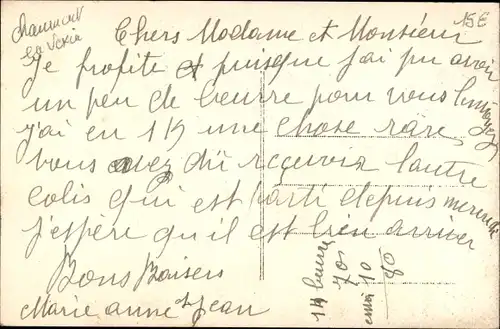 chaumont
en Vexin
15€
Chers Madame et Monsieur
Je profite et puisque j'ai pu avoir
un peu de beurre pour vous l'envoyez
j'ai eu 1 K une chose râre,
vous avez dû recevoir l'autre
colis qui est parti depuis mercredi
j'espère qu'il est bien arriver
Bons Baisers
Marie anne et Jean
1 K beurre
70s
envoi 10
80